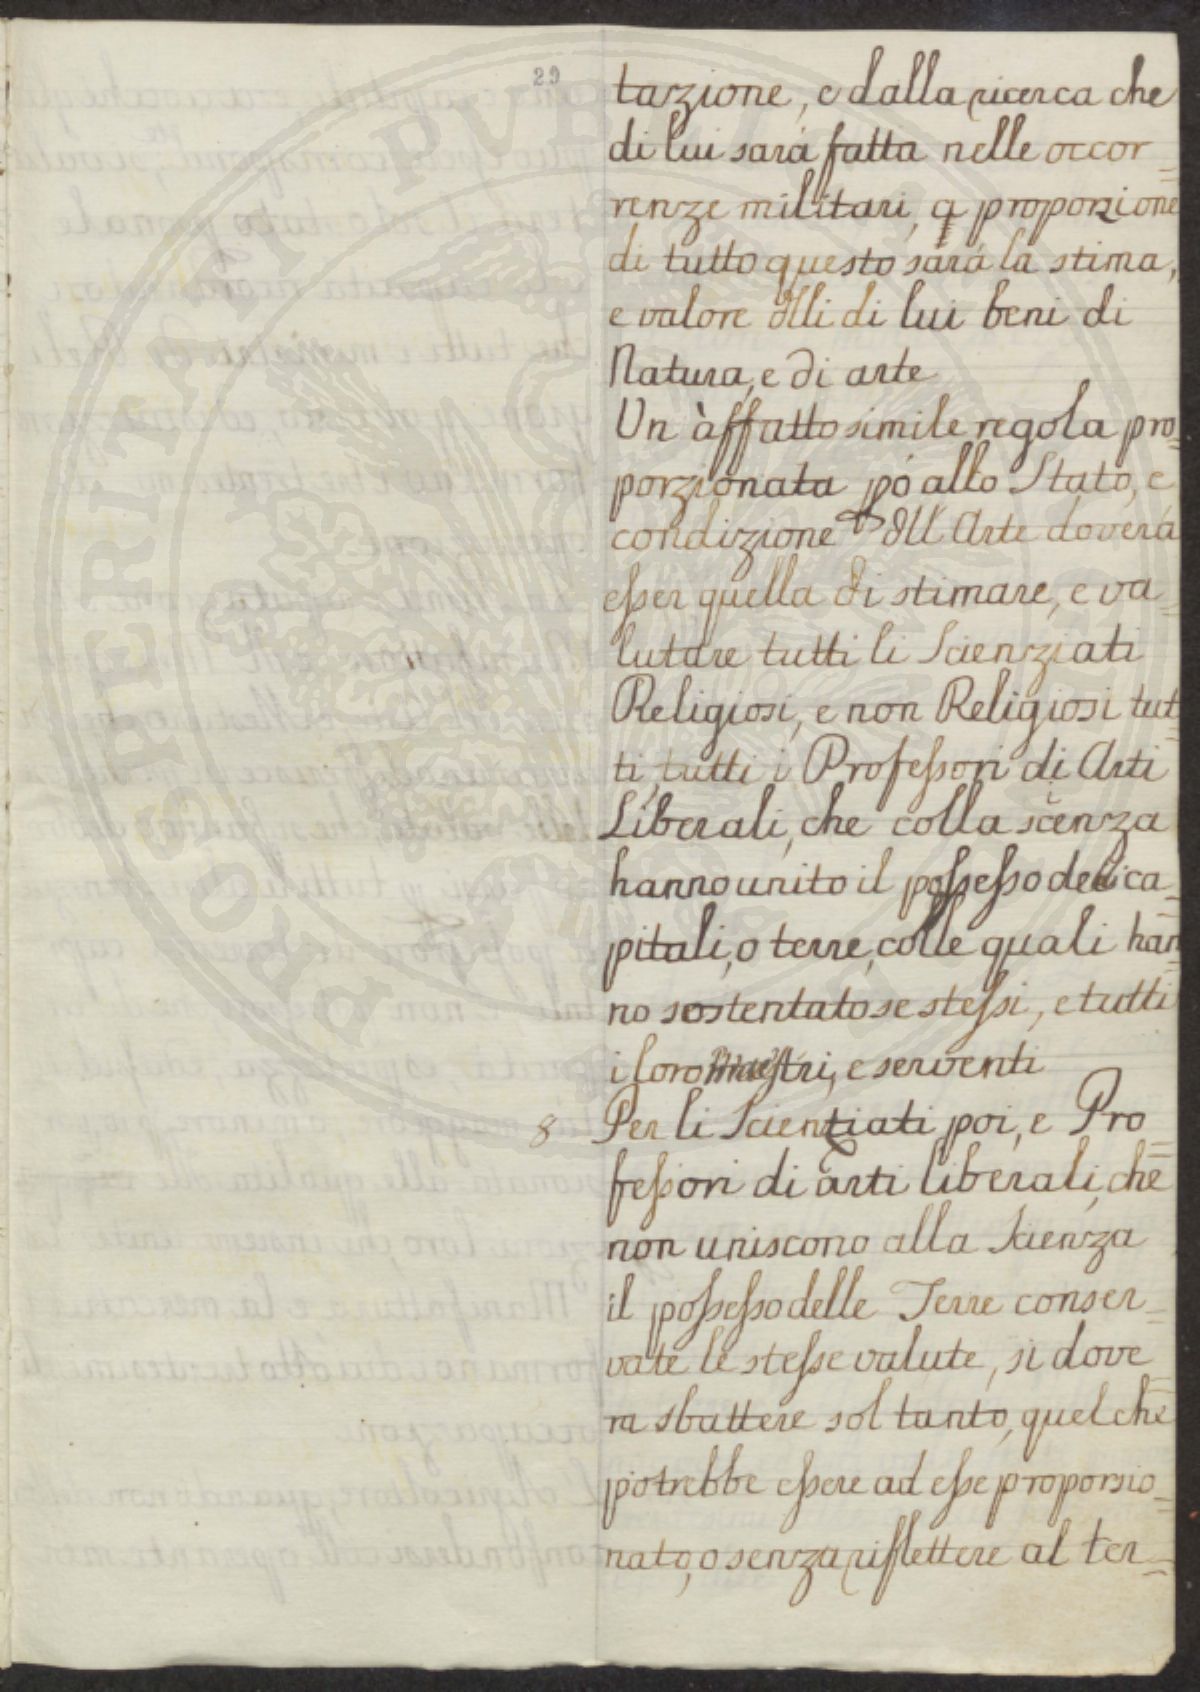 29
tazione, e dalla ricerca che
di lui sarà fatta nelle occor=
renze militari, a proporzione
di tutto questo sarà la stima,
e valore dlli di lui beni di
Natura, e di arte
Un àffatto simile regola pro=
porzionata pó allo Stato, e
condizione dll'Arte doverà
esser quella di stimare, e va=
lutare tutti li Scienziati
Religiosi, e non Religiosi tut=
ti, tutti i Professori di Arti
Liberali, che colla scenza
hanno unito il possesso de ca=
pitali, o terre, colle quali han=
no sostentato se stessi, e tutti
i loro Maestri, e serventi
8 Per li Scientiati poi, e Pro=
fessori di arti liberali, che
non uniscono alla Scienza
il possesso delle Terre conser=
vate le stesse valute, si dove=
rà sbattere sol tanto, quel che
potrebbe essere ad esse proporsio=
nato, o senza riflettere al ter=
PROSPERITATI PVBLICAE